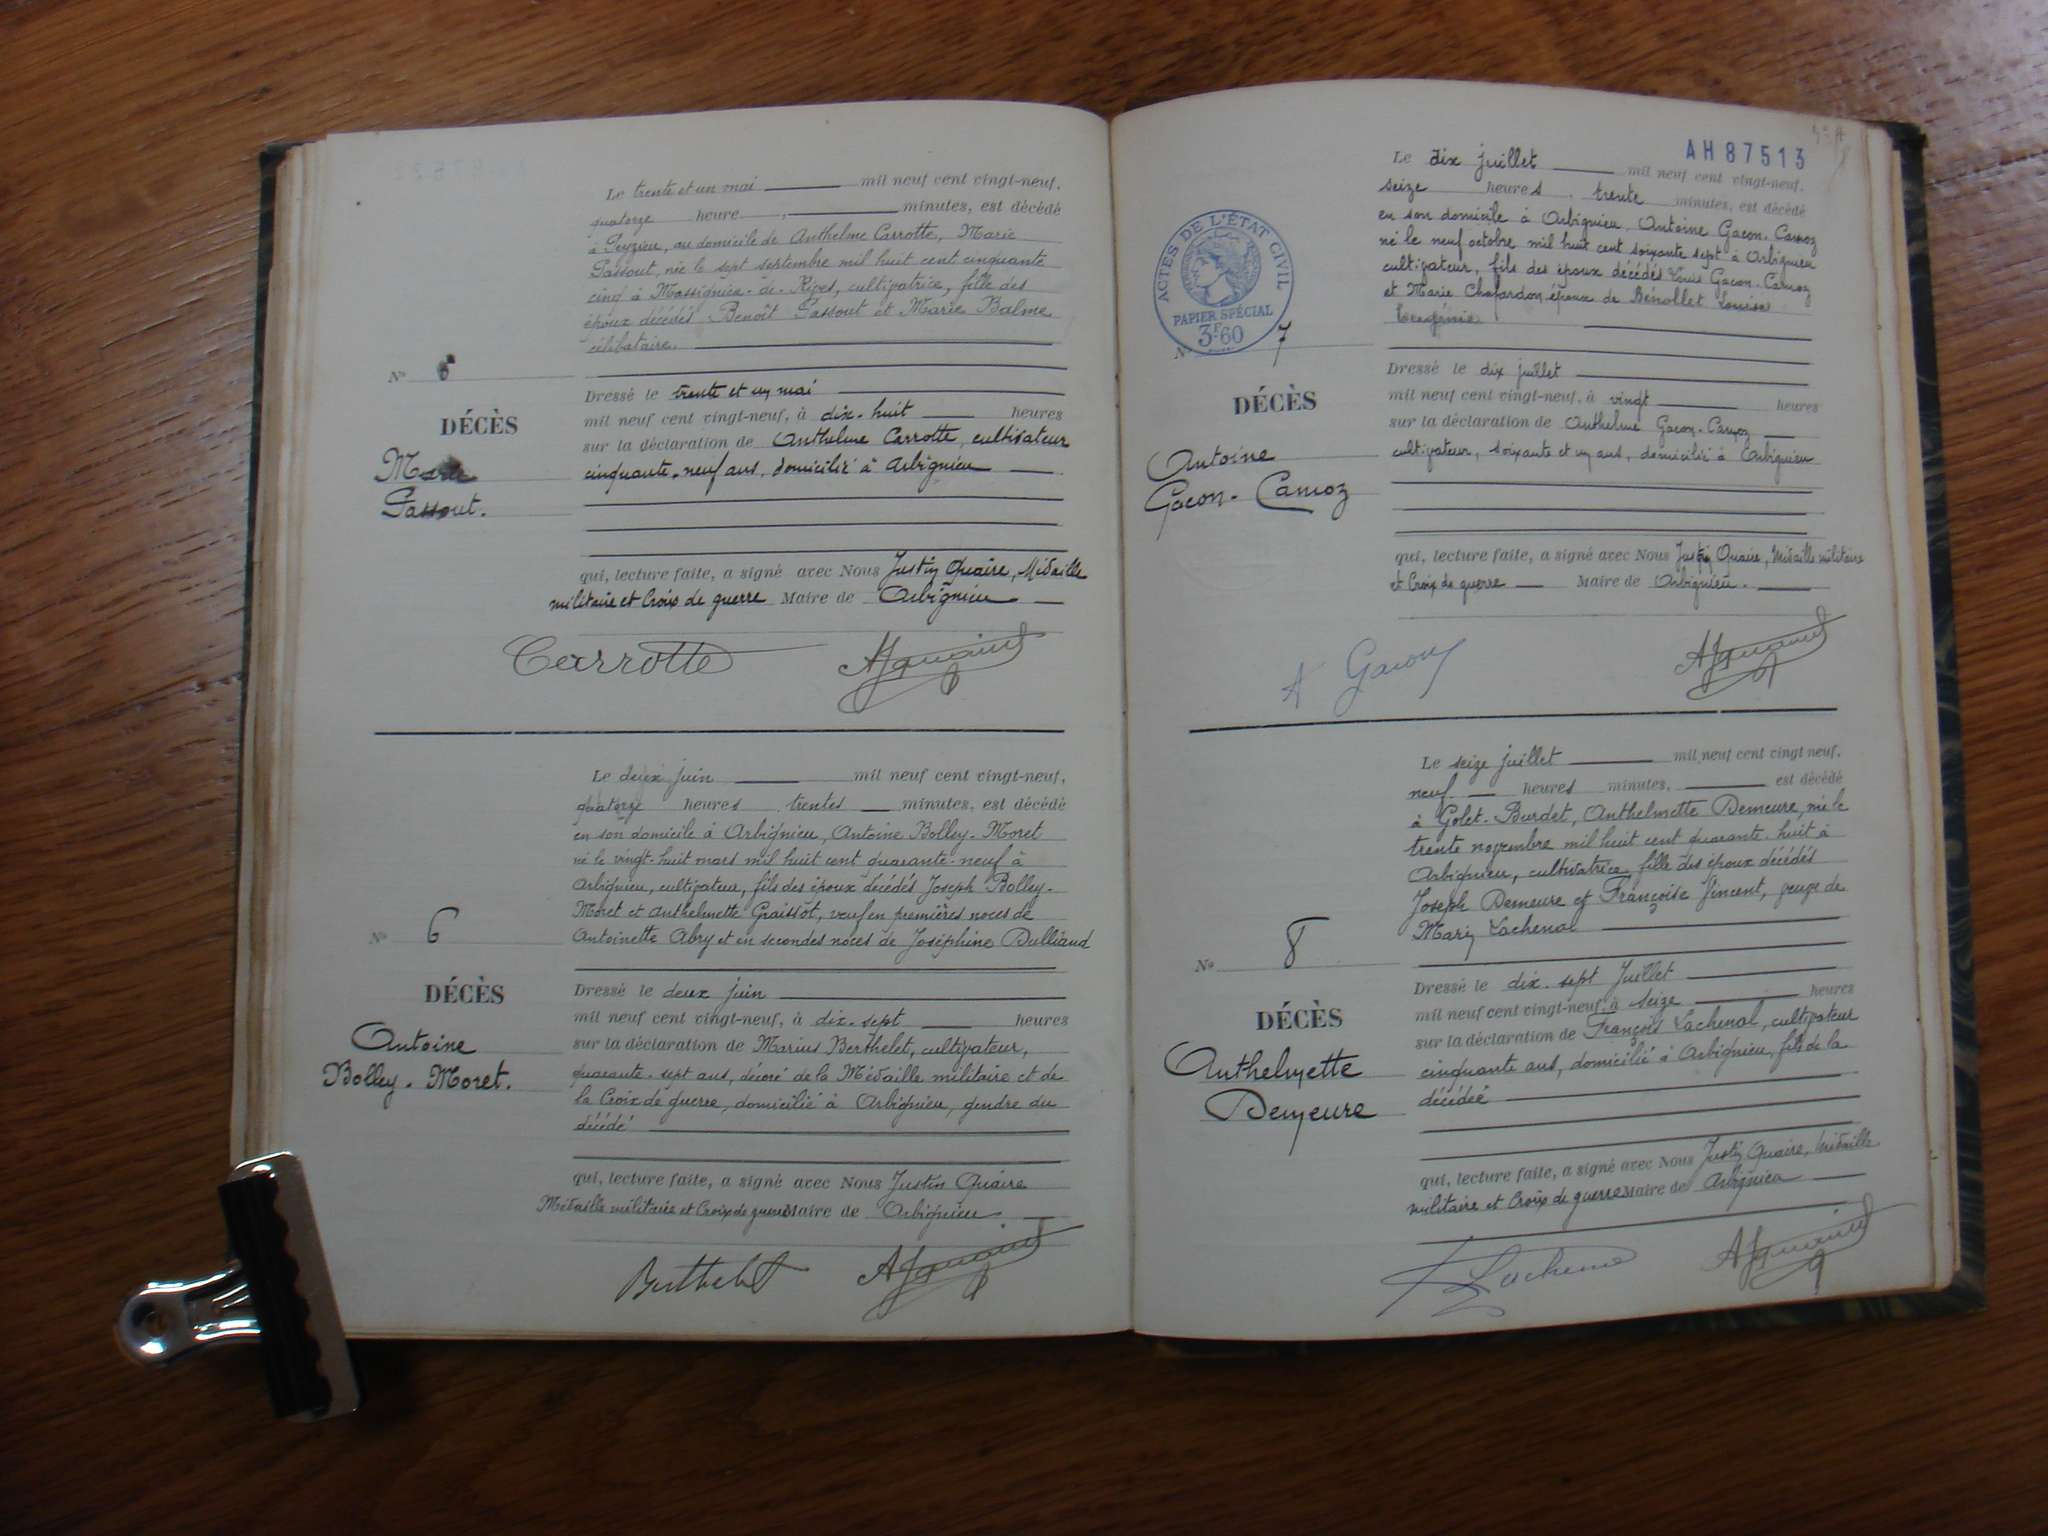 Le trente et un mai mil neuf cent vingt-neuf,
quatorze heure minutes, est décédé
à Peyzieu, au domicile de Anthelme Carrotte, Marie
Passout, née le sept septembre mil huit cent cinquante
cinq à Massignieu-de-Rives, cultivatrice, fille des
époux décédés Benoît Passout et Marie Balme
célibataire.
No 5
DÉCÈS
Marie
Passout.
Dressé le trente et un mai
mil neuf cent vingt-neuf, à dix-huit heures
sur la déclaration de Anthelme Carrotte, cultivateur
cinquante-neuf ans, domicilié à Arbignieu
qui, lecture faite, a signé avec Nous Justin Quaire, Médaille
militaire et Croix de guerre Maire de Arbignieu
Carrotte
Le deux juin mil neuf cent vingt-neuf,
quatorze heures trentes minutes, est décédé
en son domicile à Arbignieu, Antoine Bolley-Moret
né le vingt-huit mars mil huit cent quarante-neuf à
Arbignieu, cultivateur, fils des époux décédés Joseph Bolley-
Moret et Anthelmette Graissot, veuf en premières noces de
Antoinette Abry et en secondes noces de Joséphine Dulliaud
No 6
DÉCÈS
Antoine
Bolley-Moret.
Dressé le deux juin
mil neuf cent vingt-neuf, à dix-sept heures
sur la déclaration de Marius Berthelet, cultivateur,
quarante-sept ans, décoré de la Médaille militaire et de
la Croix de guerre, domicilié à Arbignieu, gendre du
décédé
qui, lecture faite, a signé avec Nous Justin Quaire
Médaille militaire et Croix de guerre Maire de Arbignieu
Berthelet
AH87513
Le dix juillet mil neuf cent vingt-neuf,
seize heures trente minutes, est décédé
en son domicile à Arbignieu, Antoine Gacon-Camoz
né le neuf octobre mil huit cent soixante sept à Arbignieu
cultivateur, fils des époux décédés Louis Gacon-Camoz
et Marie Chafardon époux de Benollet Louise
ACTES DE L'ÉTAT CIVIL
PAPIER SPÉCIAL
3F60
No 7
DÉCÈS
Antoine
Gacon-Camoz
Dressé le dix juillet
mil neuf cent vingt-neuf, à vingt heures
sur la déclaration de Anthelme Gacon-Camoz
cultivateur, soixante et un ans, domicilié à Arbignieu
qui, lecture faite, a signé avec Nous Justin Quaire, Médaille militaire
et Croix de guerre Maire de Arbignieu.
A Gacon
Le seize juillet mil neuf cent vingt neuf,
neuf heures minutes, est décédé
à Golet-Burdet, Anthelmette Demeure, née le
trente novembre mil huit cent quarante-huit à
Arbignieu, cultivatrice, fille des époux décédés
Joseph Demeure et Françoise Vincent, veuve de
Marin Lachenal
No 8
DÉCÈS
Anthelmette
Demeure
Dressé le dix-sept Juillet
mil neuf cent vingt-neuf, à seize heures
sur la déclaration de François Lachenal, cultivateur
cinquante ans, domicilié à Arbignieu, fils de la
décédée
qui, lecture faite, a signé avec Nous Justin Quaire, Médaille
militaire et Croix de guerre Maire de Arbignieu
Lachenal